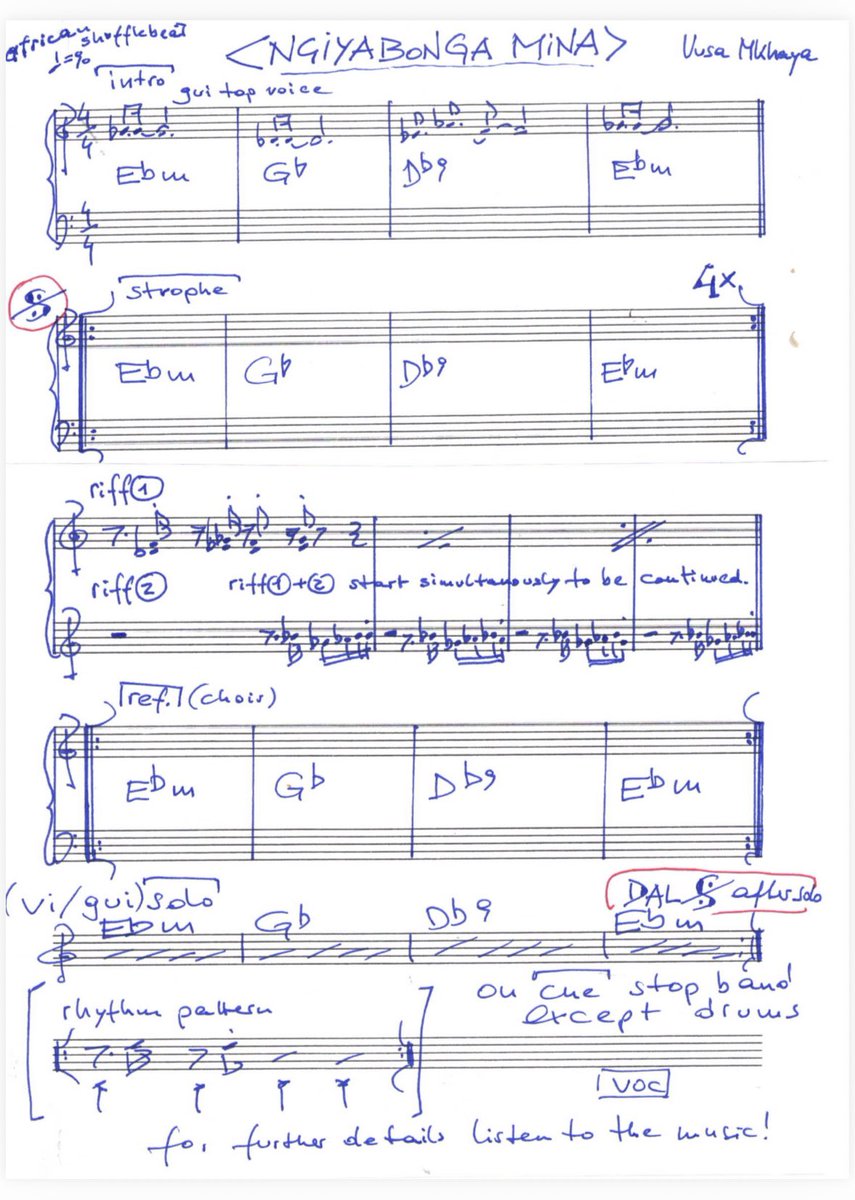 african shufflebeat
♩=90
<NGIYABONGA MINA>
Vusa Mkhaya
intro
gui top voice
4/4
Ebm Gb Db9 Ebm
4/4
strophe 4x
Ebm Gb Db9 Ebm
riff①
riff② riff①+② start simultanously to be continued.
ref. (choir)
Ebm Gb Db9 Ebm
(vi/gui) solo DAL 𝄋 after solo
Ebm Gb Db9 Ebm
on cue stop band
except drums
rhythm pattern
voc
for further details listen to the music!